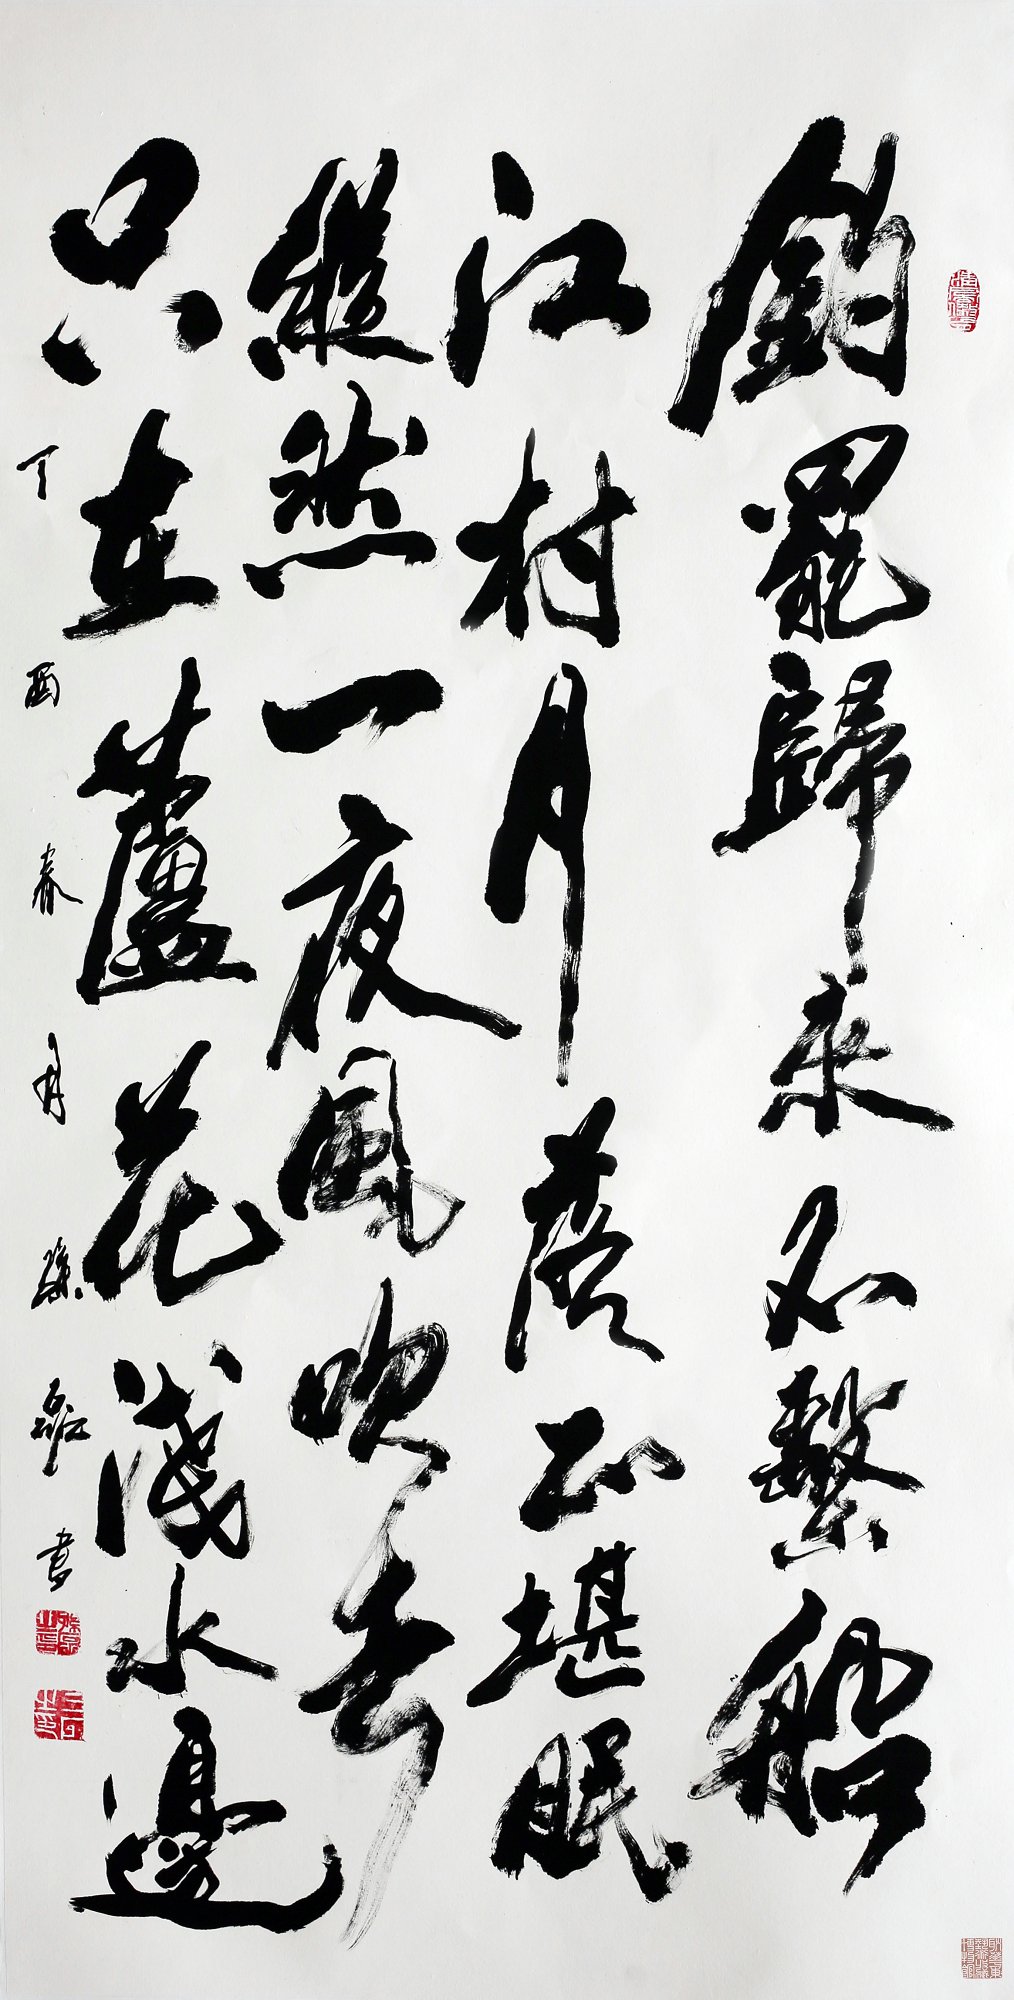 釣罷歸来不繫船
江村月落正堪眠
縱然一夜風吹去
只在蘆花淺水邊
丁酉春月孫磊書